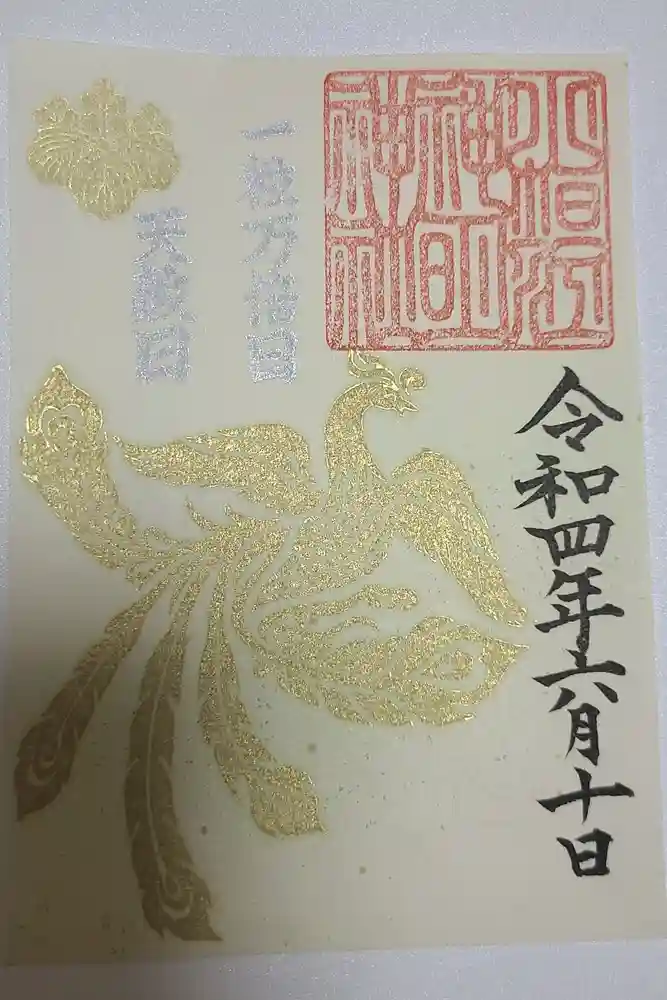 令和四年六月十日
一粒万倍日
天赦日